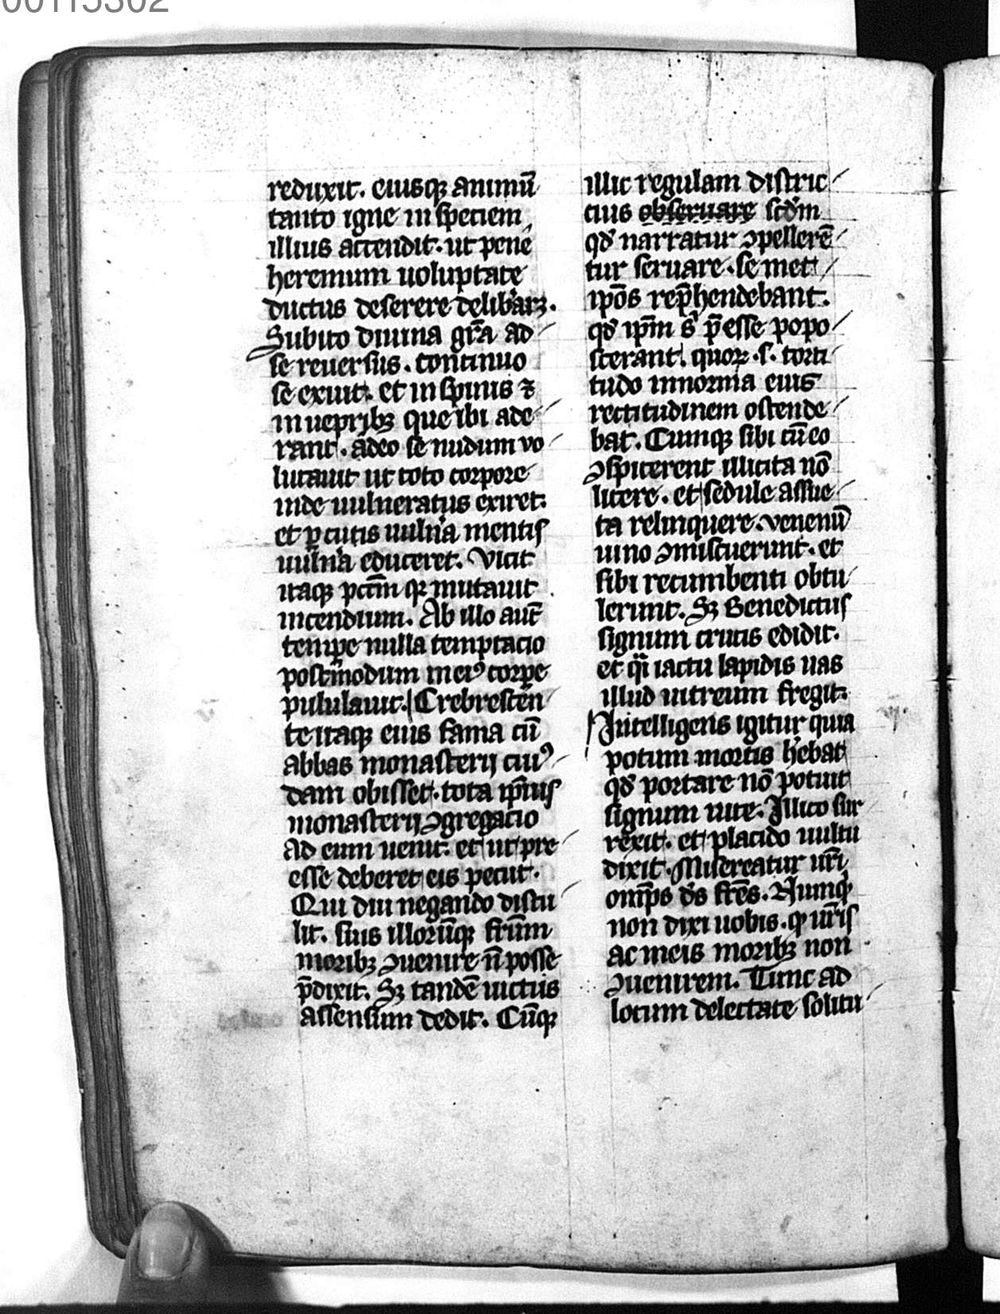 reduxit. eiusqꝫ animū
tanto igne in speciem
illius accendit. ut pene
heremum uoluptate
ductus deserere delib̾arꝫ.
Subito diuina gr̄a ad
se reuersus. continuo
se exuit. et in spinis ⁊
in uepribꝫ que ibi ade
rant. adeo se nudum uo
lutauit ut toto corpore
inde uulneratus exiret.
et ꝑ cutis uuln̾a mentis
uuln̾a educeret. Vicit
itaqꝫ pctm̄ qꝛ mutauit
incendium. Ab illo aut̄
tempe nulla temptacio
postmodum in eiꝰ corpe
pululauit. Crebrescen
te itaqꝫ eius fama cū
abbas monasterij cuiꝰ
dam obisset. tota ip̄ius
monasterij ꝯgregacio
Ad eum uenit. et ut pre
esse deberet eis peciit.
Qui diu negando distu
lit. suis illorūqꝫ fr̄um
moribꝫ ꝯuenire n̄ posse
p̄dixit. Sꝫ tandē uictus
assensum dedit. Cūqꝫ
illic regulam distric
cius obseruare scdm̄
qd̄ narratur ꝯpellerē
tur seruare. se met
ip̄os rep̄hendebant.
qd̄ ip̄m s̄ p̄esse popo
scerant. quoꝝ .s. torti
tudo in norma eius
rectitudinem ostende
bat. Cumqꝫ sibi cū eo
ꝯspicerent illicita nō
licere. et sedule assue
ta relinquere. venenū
uino ꝯmiscuerunt. et
sibi recumbenti obtu
lerunt. Sꝫ Benedictus
signum crucis edidit.
et q̄i iactu lapidis uas
illud uitreum fregit.
Intelligens igitur quia
potum mortis h̄ebat
qd̄ portare nō potuit
signum uite. Illico sur
rexit. et placido uultu
dixit. Misereatur ur̄i
omp̄s ds̄ fr̄es. Numqͥd
non dixi uobis. ꝙ ur̄is
ac meis moribꝫ non
ꝯuenirem. Tunc ad
locum delectate solitu